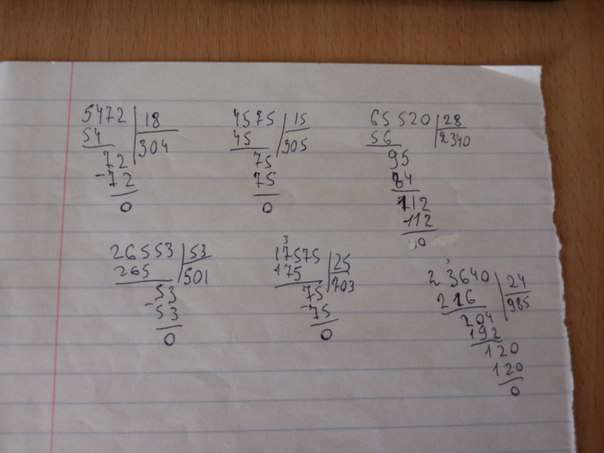 5472 | 18
54 | 304
72
-72
0
4575 | 15
45 | 305
75
75
0
65520 | 28
56 | 2340
95
84
112
112
0
26553 | 53
265 | 501
53
-53
0
3
17575 | 25
175 | 703
75
-75
0
23640 | 24
216 | 985
204
192
120
120
0